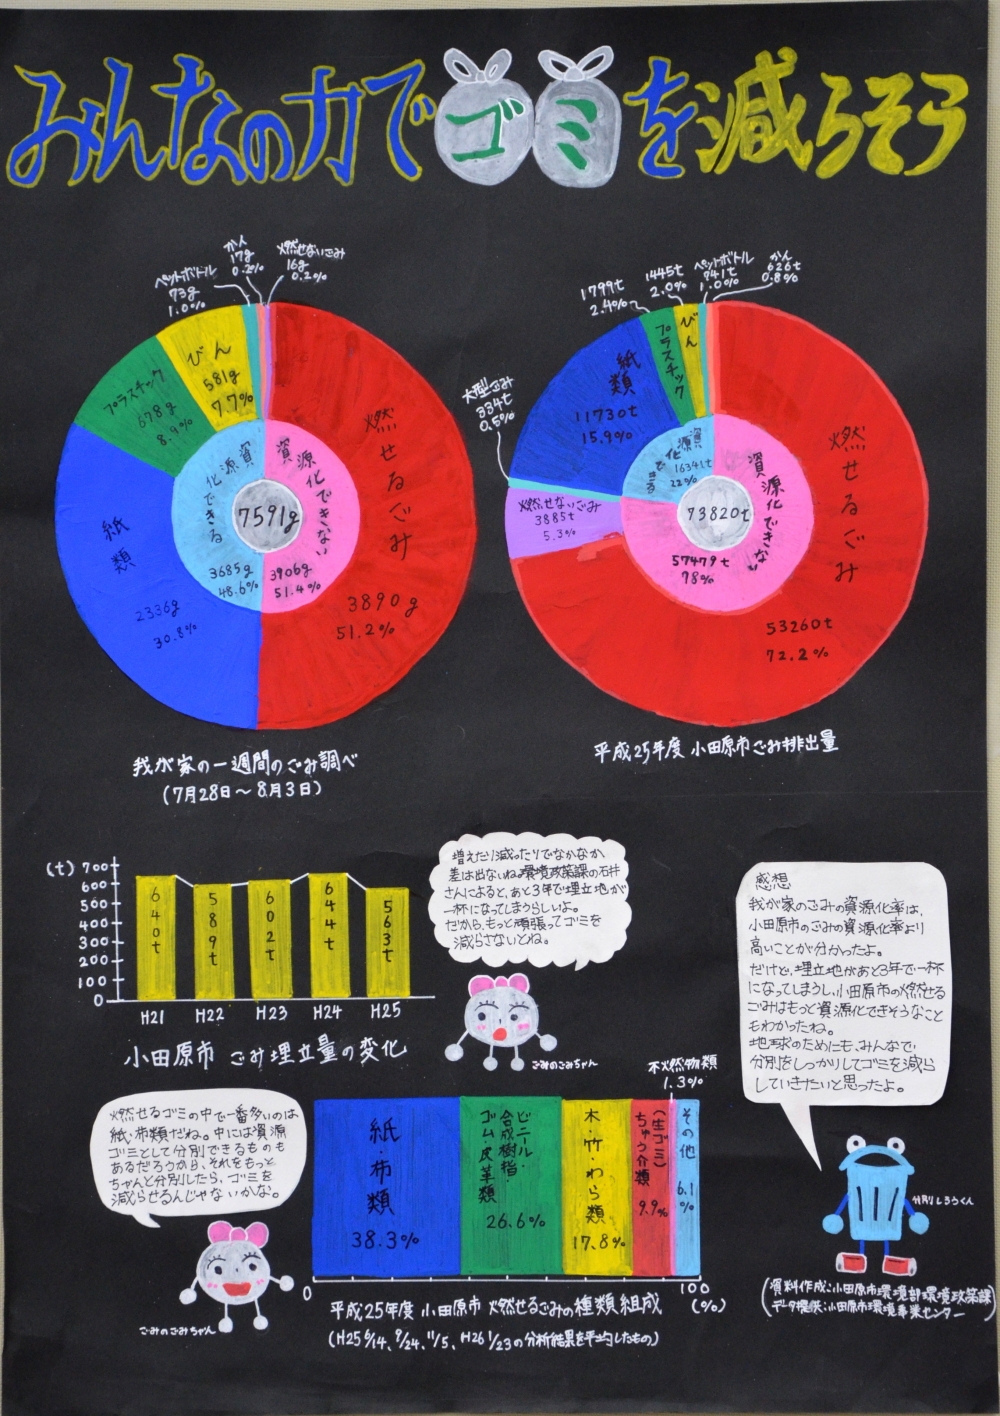 みんなの力でゴミを減らそう
かん
17g
0.2%
燃せないごみ
16g
0.2%
ペットボトル
73g
1.0%
びん
581g
7.7%
プラスチック
678g
8.9%
紙類
2336g
30.8%
燃せるごみ
3890g
51.2%
資源化できる
3685g
48.6%
資源化できない
3906g
51.4%
7591g
我が家の一週間のごみ調べ
(7月28日〜8月3日)
1799t
2.4%
1445t
2.0%
ペットボトル
741t
1.0%
かん
626t
0.8%
大型ごみ
334t
0.5%
プラスチック
びん
紙類
11730t
15.9%
燃せないごみ
3885t
5.3%
燃せるごみ
53260t
72.2%
資源化できる
16341t
22%
資源化できない
57479t
78%
73820t
平成25年度 小田原市ごみ排出量
(t)
700
600
500
400
300
200
100
0
640t
589t
602t
644t
563t
H21
H22
H23
H24
H25
小田原市 ごみ埋立量の変化
増えたり減ったりでなかなか
差は出ないね。環境政策課の石井
さんによると、あと3年で埋立地が
一杯になってしまうらしいよ。
だから、もっと頑張ってゴミを
減らさないとね。
ごみのごみちゃん
感想
我が家のごみの資源化率は、
小田原市のごみの資源化率より
高いことが分かったよ。
だけど、埋立地があと3年で一杯
になってしまうし、小田原市の燃せる
ごみはもっと資源化できそうなこと
もわかったね。
地球のためにも、みんなで
分別をしっかりしてゴミを減ら
していきたいと思ったよ。
分別しろうくん
燃せるゴミの中で一番多いのは
紙・布類だね。中には資源
ゴミとして分別できるものも
あるだろうから、それをもっと
ちゃんと分別したら、ゴミを
減らせるんじゃないかな。
ごみのごみちゃん
不燃物類
1.3%
紙・布類
38.3%
ビニール・
合成樹脂・
ゴム・皮革類
26.6%
木・竹・わら類
17.8%
(生ゴミ)
ちゅう介類
9.9%
その他
6.1%
0
100
(%)
平成25年度 小田原市 燃せるごみの種類組成
(H25 6/14、9/24、11/5、H26 1/23の分析結果を平均したもの)
(資料作成:小田原市環境部環境政策課
データ提供:小田原市環境事業センター)